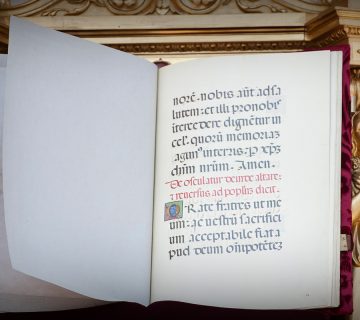 norē. nobis aūt ad sa
lutem: et illi pro nobis
itercedere dignētur in
cel'. quorū memoriaz
agim' in terris. P xp̄z
dn̄m nr̄um. Amen.
De osculatur deinde altare:
z reversus ad populū dicit.
ORate fratres ut me
um: ac vestrū sacrifici
um acceptabile fiat a
pud deum om̄ipotētez